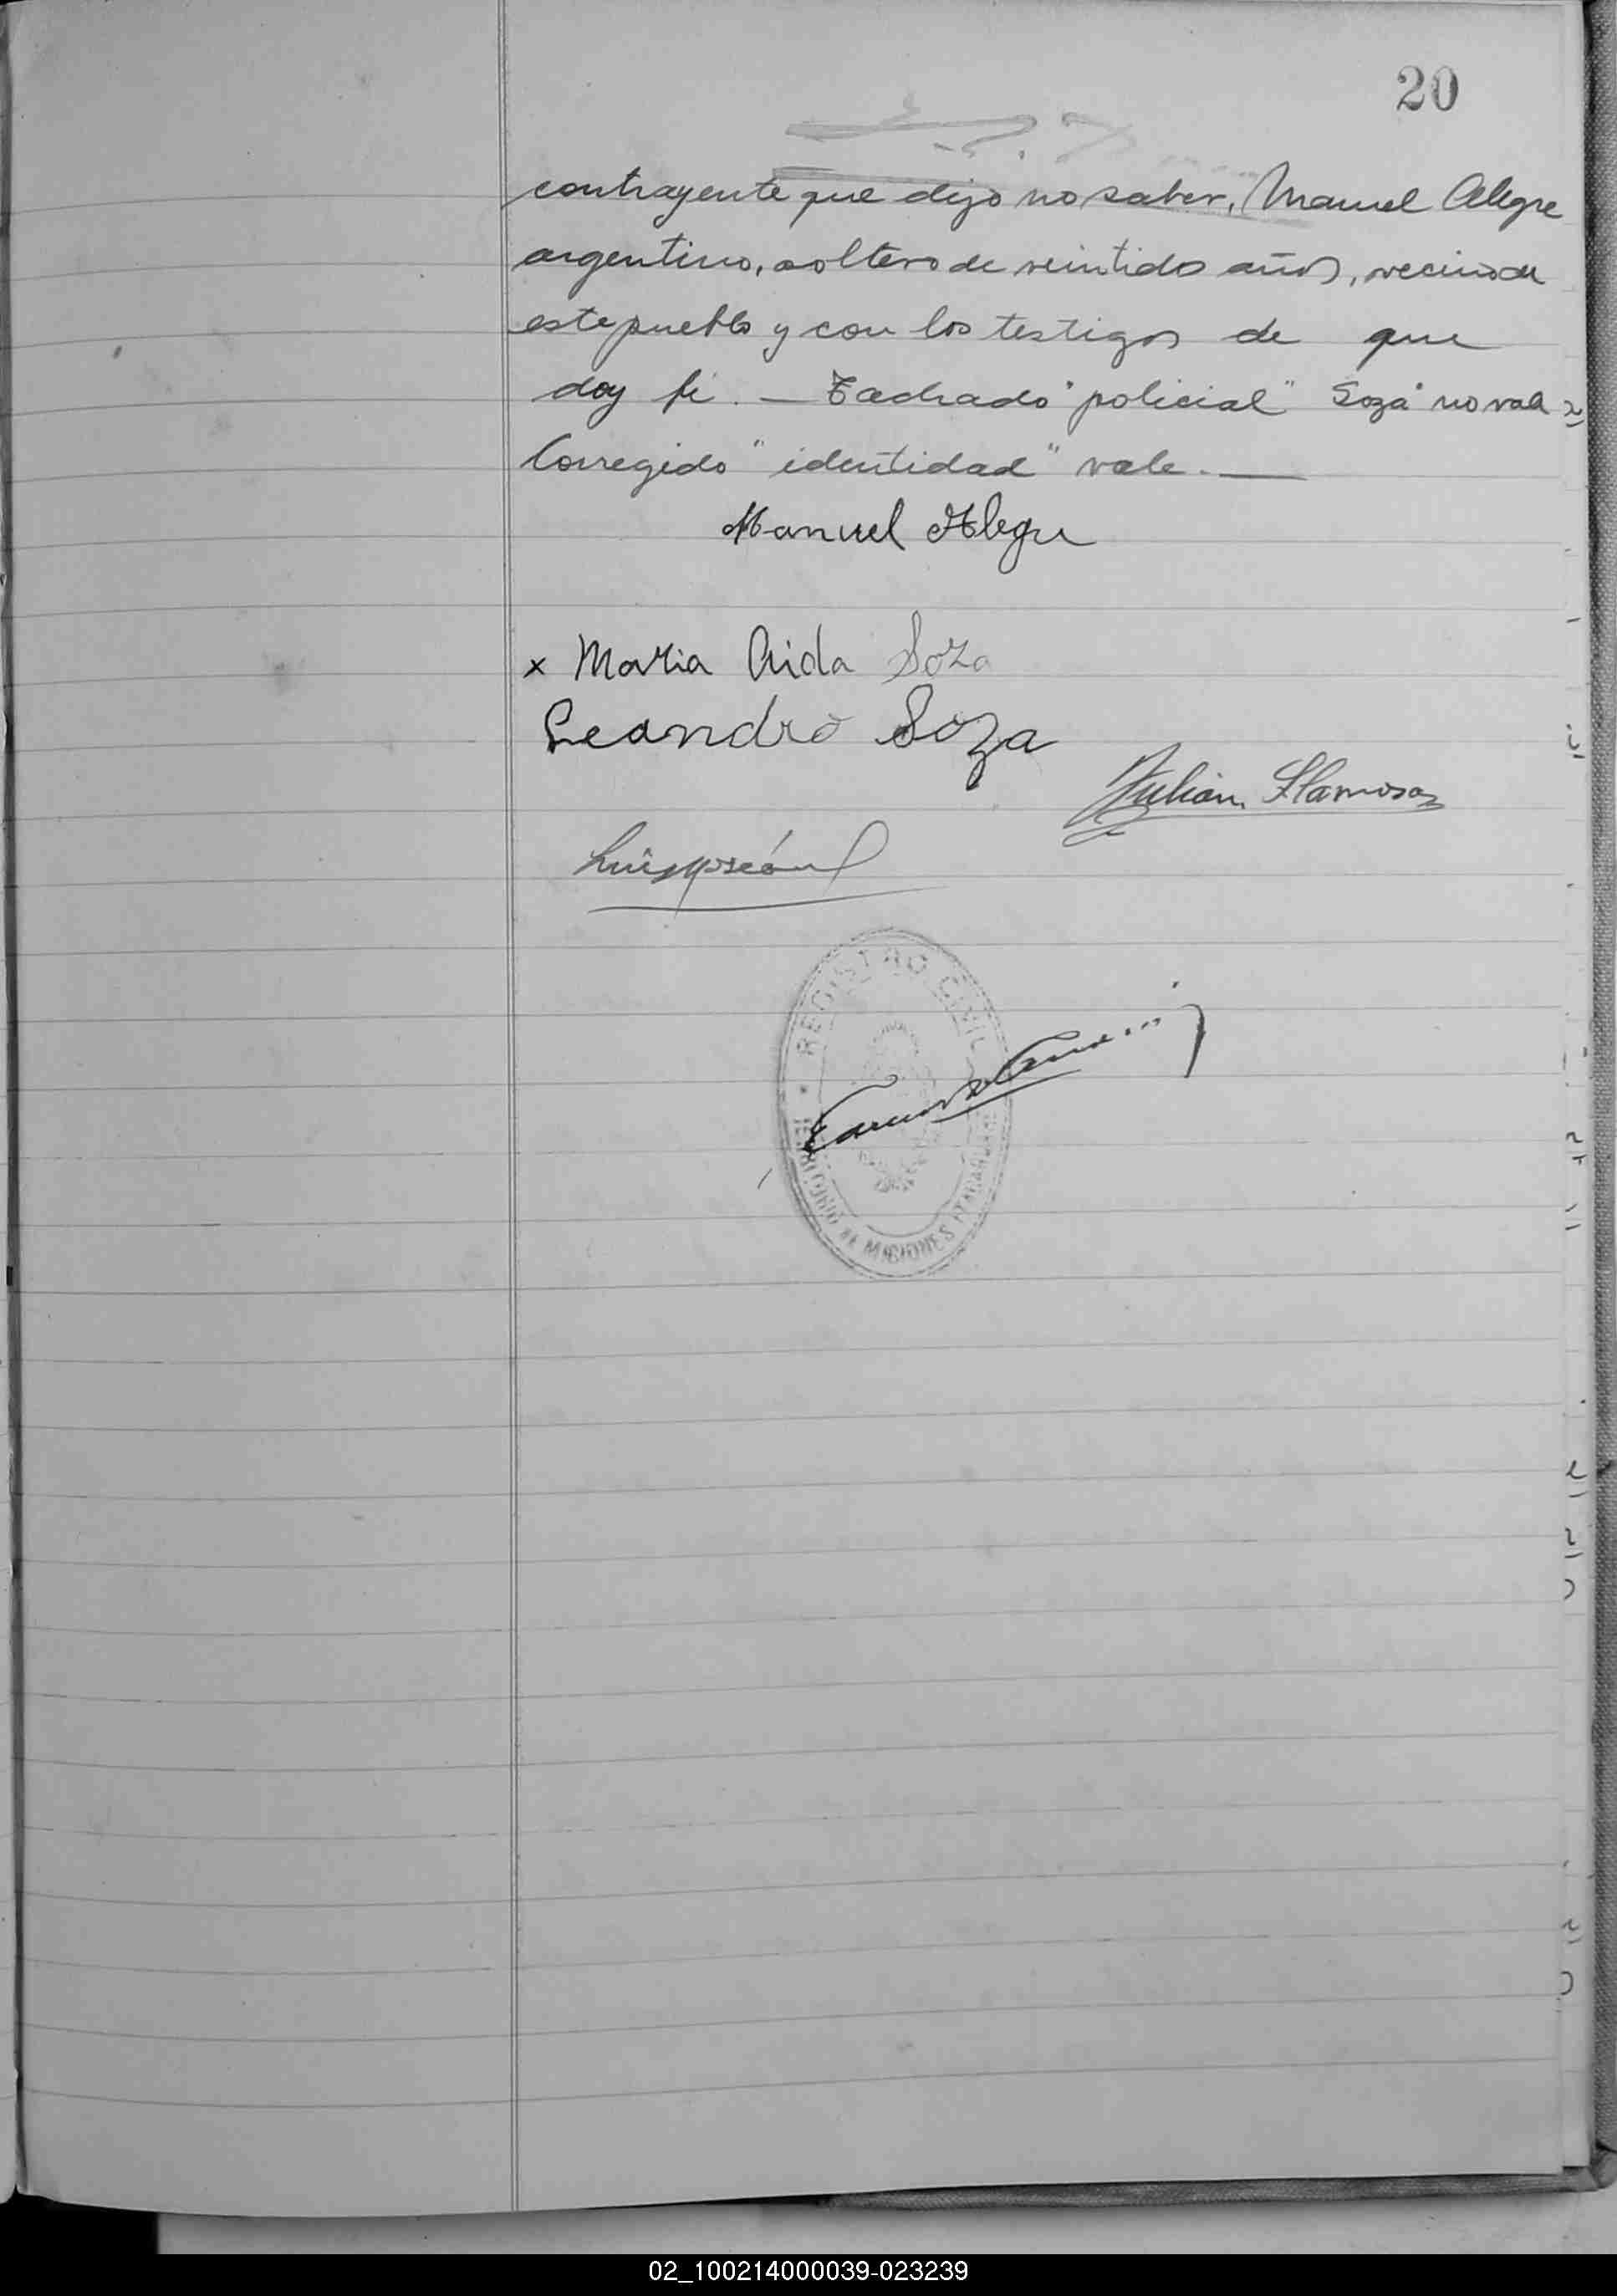 20
contrayente que dijo no saber, Manuel Alegre
argentino, soltero de veintido años, vecino de
este pueblo y con los testigos de que
doy fé. — Tachado "policial" Soza" no vale
Corregido "identidad" vale. —
Manuel Alegre
x Maria Aida Soza
Leandro Soza
Julian Llamosas
REGISTRO CIVIL
TERRITORIO DE MICIONES
02_100214000039-023239